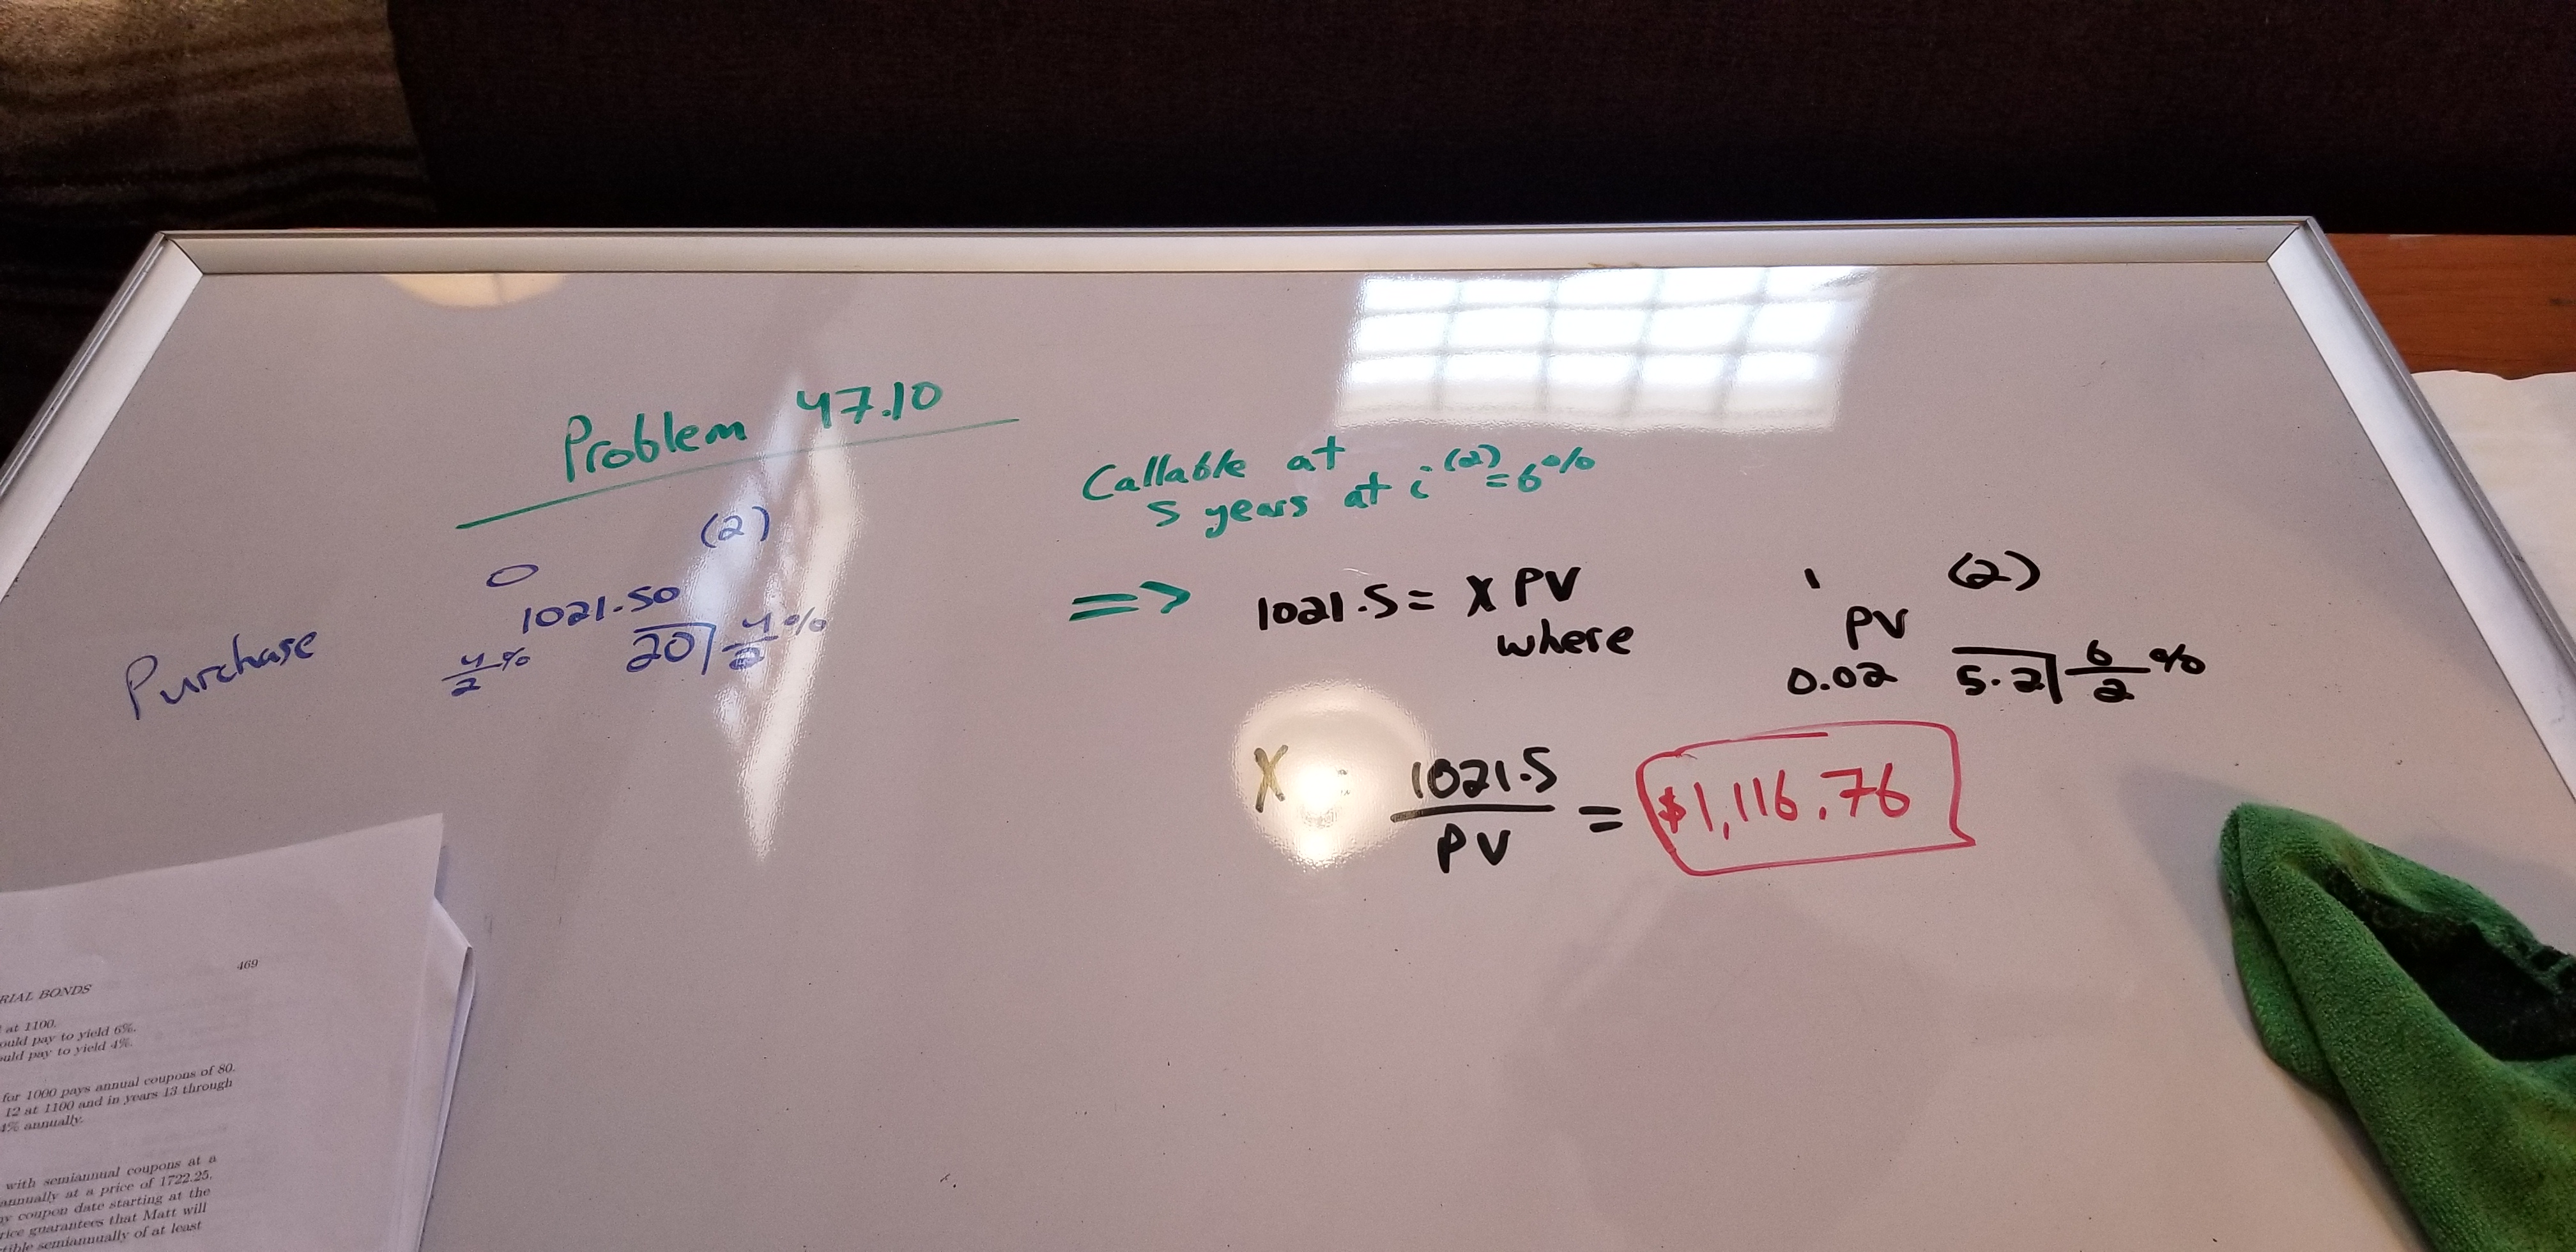 Problem 47.10
Callable at
5 years at i^(2) = 6%
0 (2)
Purchase 1021.50
4/2% 20| 4/2%
=> 1021.5 = X PV
where
1 (2)
PV
0.02 5.2| 6/2%
X = 1021.5/PV = $1,116.76
469
RIAL BONDS
at 1100.
ould pay to yield 6%.
ould pay to yield 4%.
for 1000 pays annual coupons of 80.
12 at 1100 and in years 13 through
4% annually.
with semiannual coupons at a
annually at a price of 1722.25.
ny coupon date starting at the
rice guarantees that Matt will
rtible semiannually of at least